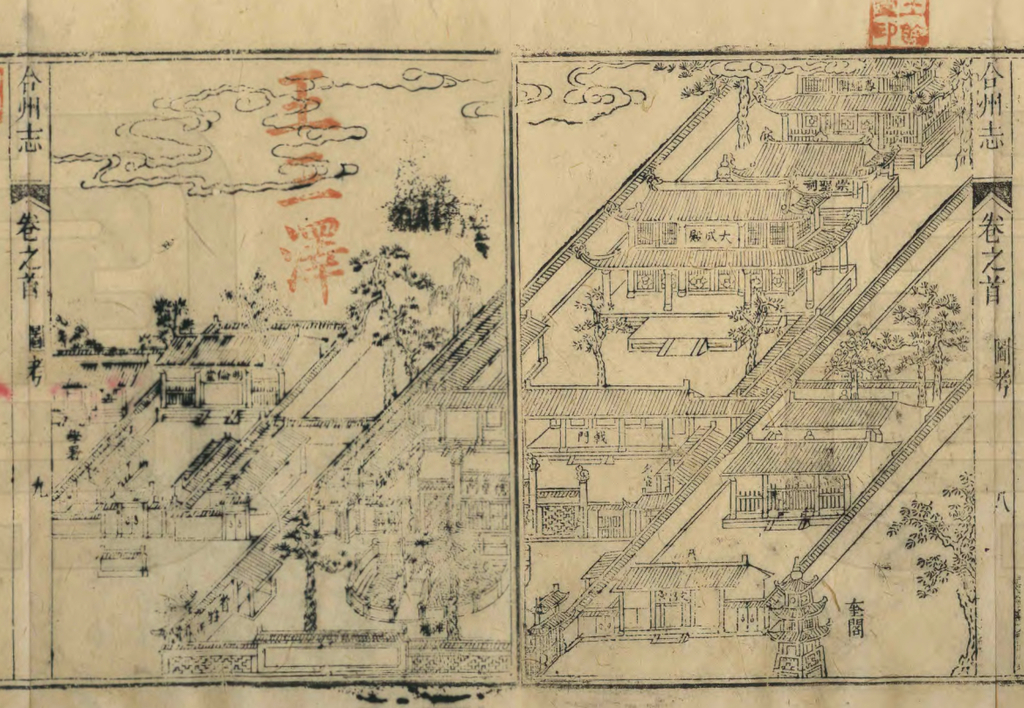 合州志
卷之首
圖考
八
尊經閣
崇聖祠
大成殿
戟門
奎閣
王三澤
明倫堂
合州志
卷之首
圖考
九